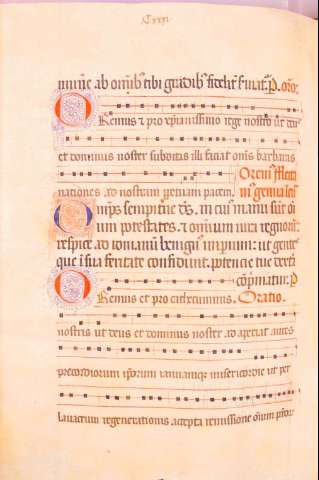 Cxxxj
mune ab omĩbꝰ tibi gradibꝰ fidelit̃ ſuiat᷑. P. oro:
Remus ⁊ pro xp̃ianiſſimo rege noſtro ut deus
et dominus noſter ſubditas illi faciat om̃s barbaras
nationes ad noſtram ppetuam pacem. Oremꝰ flecta
mꝰ genua leu
mp̃s ſempitñe ds̃. in cuiꝰ manu ſunt oĩ
um poteſtates. ⁊ omniũ iura regnoꝝ:
reſpice ad romanũ benignꝰ impium: ut gentes
que ĩ ſua feritate confidunt. potencie tue dextera
cõpmãtur. P.
Remus et pro cathecuminis. Oratio.
noſtris ut deus et dominus noſter ad aperiat aures
precordiorum ip̃orum ianuamqꝫ miſericordie ut per
lauacrum regenerationis accepta remiſſione oĩum